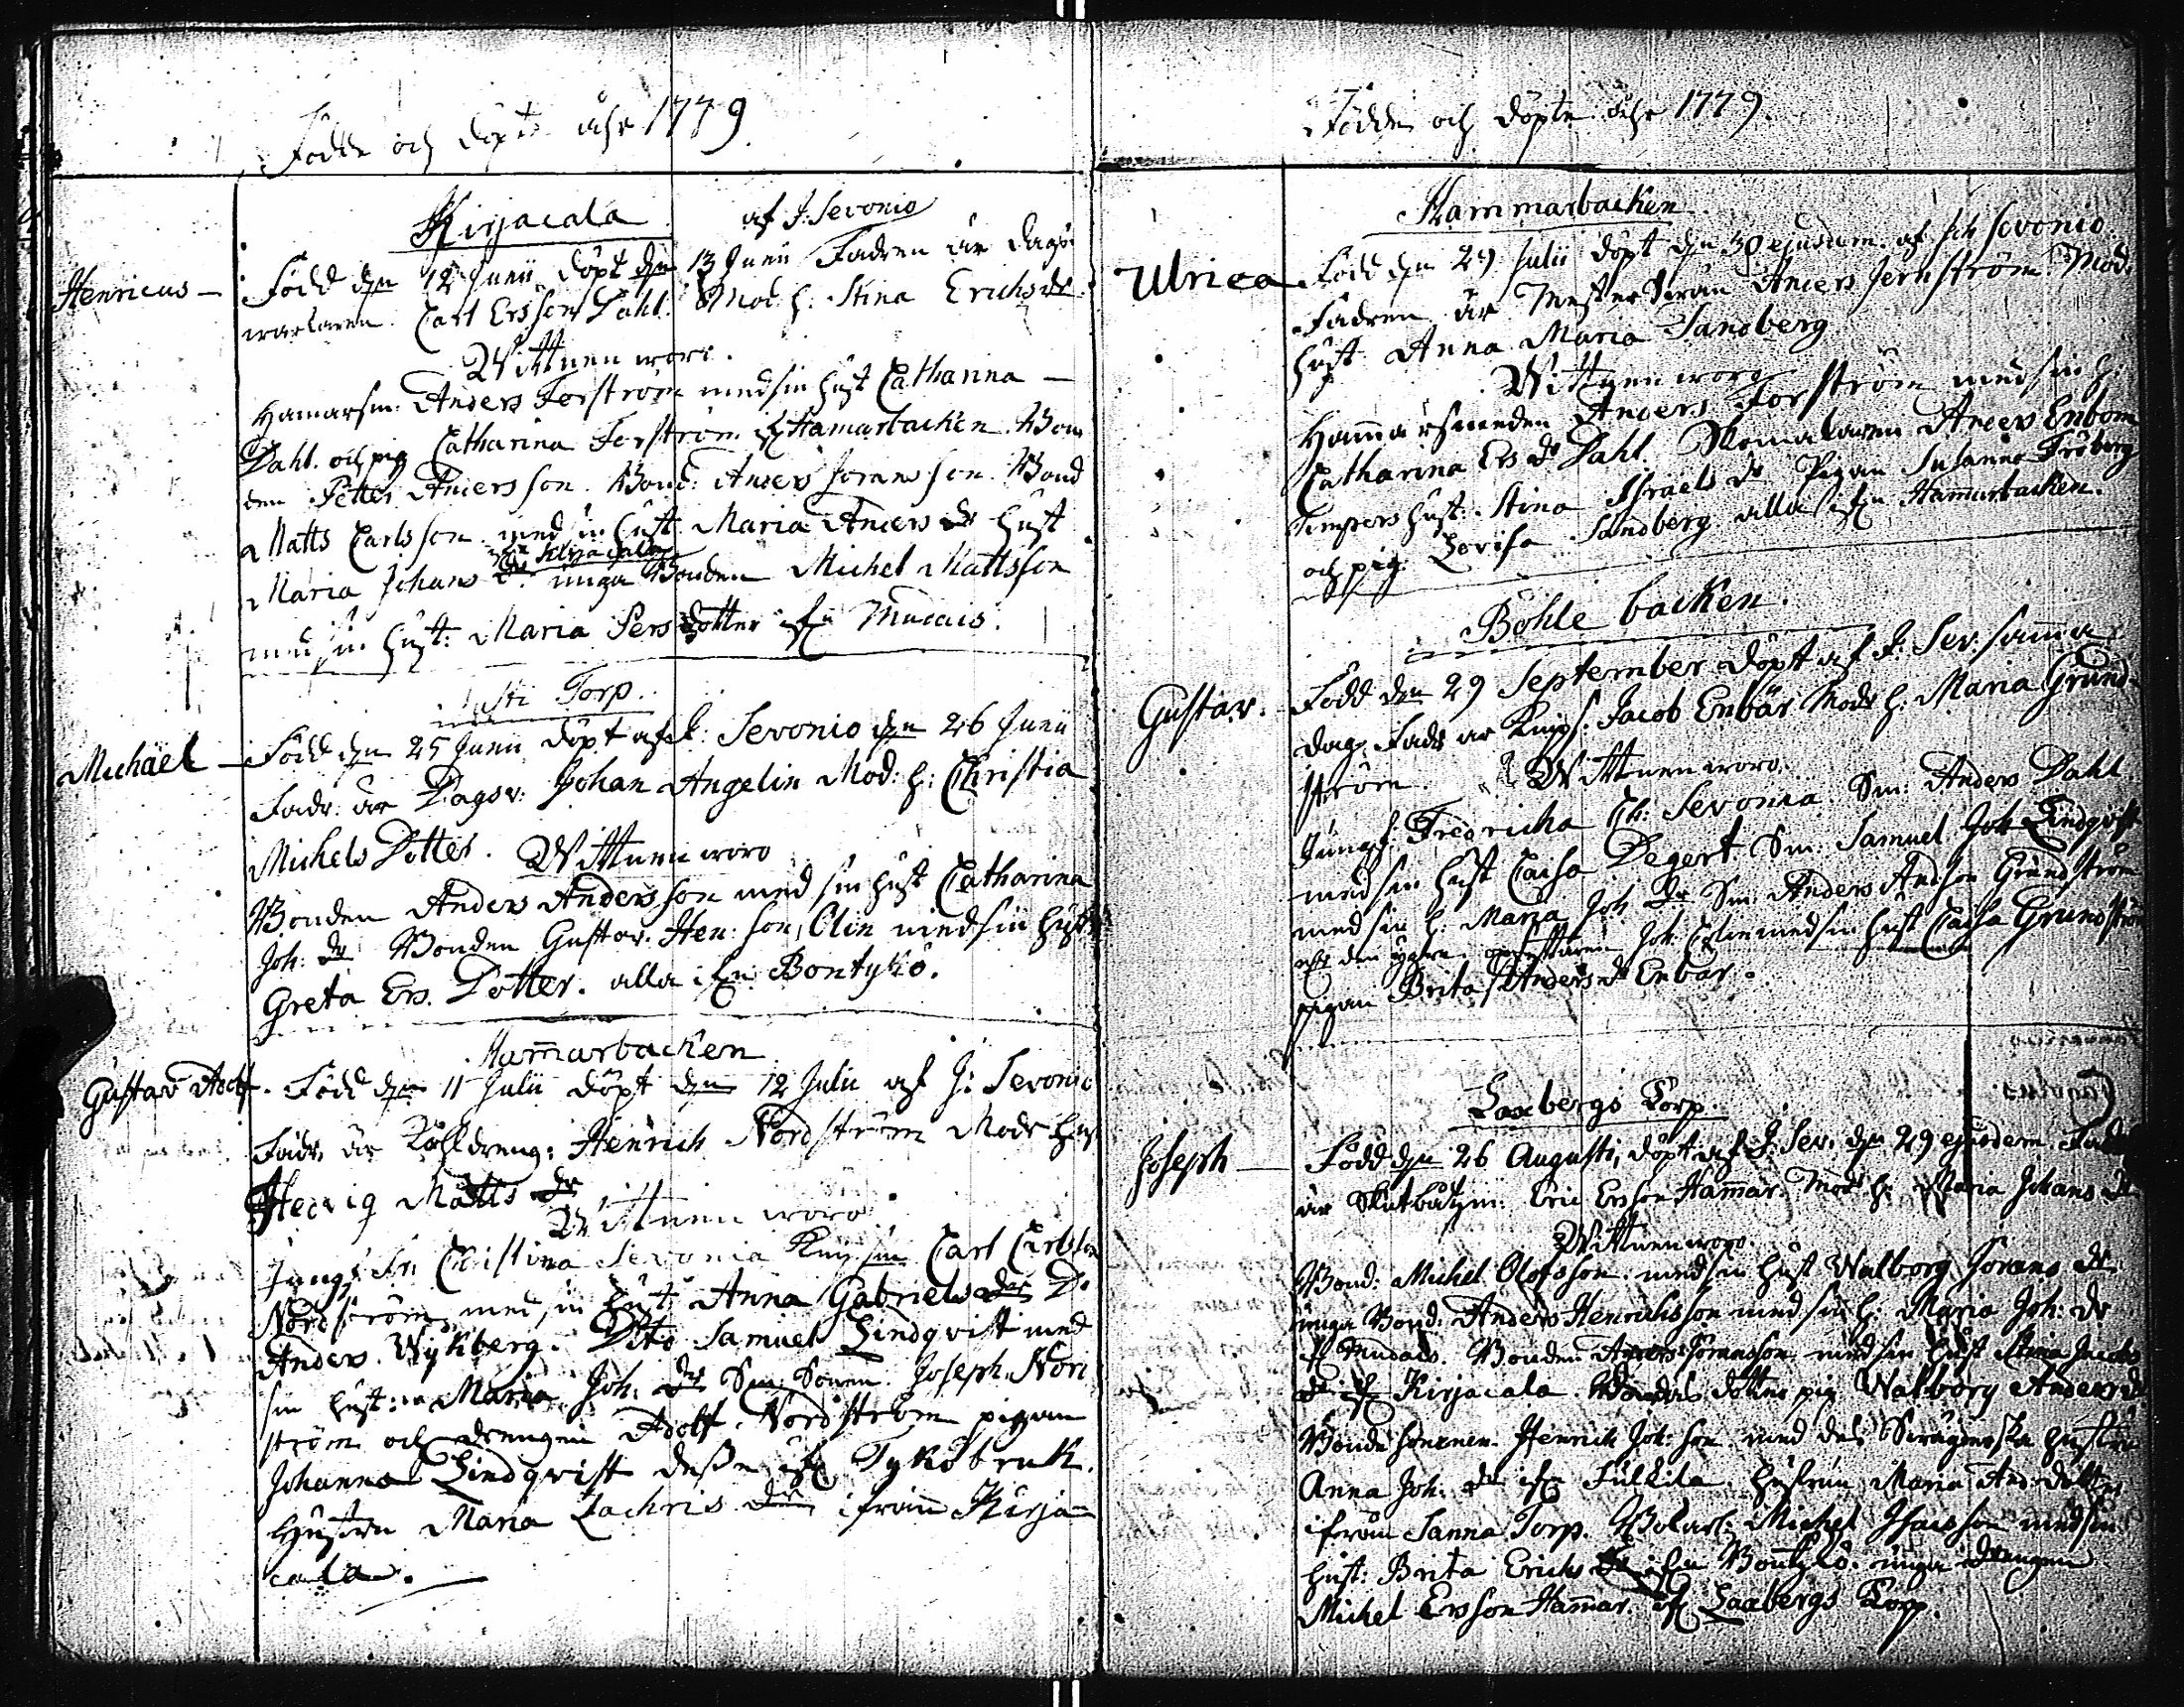 Födde och döpte åhr 1779
Kirjacala af J: Sevonio
Henricus — Född den 12 Junii döpt den 13 Junii Fadren är dags
warkaren. Carl Ersson Dahl. Mod: h: Stina Erichsdr
Wittnen woro.
Hamarsm: Anders Forström med sin hust Catharina —
Dahl. och pig Catharina Forström ifr Hamarbacken. Bon
den Petter Andersson. Bond: Anders Joransson. Bond
Matts Carlsson med sin hust Maria Anders dr hust
Maria Johans dr ifrn Kirjacala unga Bonden Michel Mattsson
med sin hust: Maria Persdotter ifrn Mutais.
Torp.
Michaël — Född den 25 Junii döpt af J: Sevonio den 26 Junii
Fadr: är Dagsv: Johan Angelin Mod: h: Christia
Michels Dotter. Wittnen woro
Bonden Anders Andersson med sin hust Catharina
Joh: dr Bonden Gustav. Hen: son, Olin med sin hust
Greta Ers. Dotter. alla ifrn Bontykö.
Hamarbacken
Gustav Adolf. Född den 11 Julii döpt den 12 Julii af J: Sevonio
Fadr. är Kohldreng: Henrich Nordström Modr hust
Hedvig Matts dr
Wittnen woro
Jungfr: Christina Sevonia Knip.sm Carl Carlsson
Nordström med sin hust: Anna Gabriels dr D:o
Anders. Wykberg. Dito Samuel Lindqvist med
sin hust: Maria Joh: dr Sm: Sonen. Joseph Nord
ström och drengen Adolf Nordström pigan
Johanna Lindqvist desse ifr Tykö bruk.
Hustrun Maria Zachris dr ifrån Kirja-
cala.
Födde och döpte åhr 1779.
Hammarbacken
Ulrica Född den 29 Julii döpt den 30 ejusdem. af Joh Sevonio
Fadren är Mester Sven Anders Jernström. Mod:
hust Anna Maria Sandberg
Wittnen woro
Hammarsmeden Anders Forström med sin h:
Catharina Ers dr Dahl. Skomakaren Anders Enbom
Timpers hust: Stina Israels dr Pigan Susanna Fröberg
och pig: Lovisa Sandberg alla ifrn Hammarbacken.
Böhle backen.
Gustav. Född den 29 September döpt af J: Sev: samma
dag. Fadr är Knips: Jacob Enbär Modr h: Maria Grund-
ström. Wittnen woro.
Jungf: Fredricha Ch: Sevonia. Sm: Anders Dahl
med sin hust Caisa Degert Sm: Samuel Joh Lindqvist
med sin h: Maria Joh: dr Sm: Anders Andson Grundström
den yngre. Joh: med sin hust Caisa Grundström
pigan Brita Anders dr Enbär.
Laxbergs Torp.
Joseph — Född den 26 Augusti, döpt af J: Sev: den 29 ejusdem. Fadr
är Skutbåtzm: Eric Ersson Hammar. Mod: h: Maria Johans dr
Wittnen woro.
Bond: Michel Olofsson med sin hust Walborg Jörans dr
unga Bond: Anders Henrichsson med sin h: Maria Joh: dr
ifr Mutais. Bonden Anders Jöransson med sin hust Stina Jacobs
dr ifr Kirjacala. Bondens dotter pig Walborg Andersdr
Bonde sonenen Henrich Joh: son med des hustru
Anna Joh: dr ifr Fulkila hustrun Maria And: dotter
ifrån Sanna Torp. Michel Isacsson med sin
hust: Brita Erichs dr ifrn Bontykö. unga drengen
Michel Ersson Hammar. ifr Laxbergs Torp.